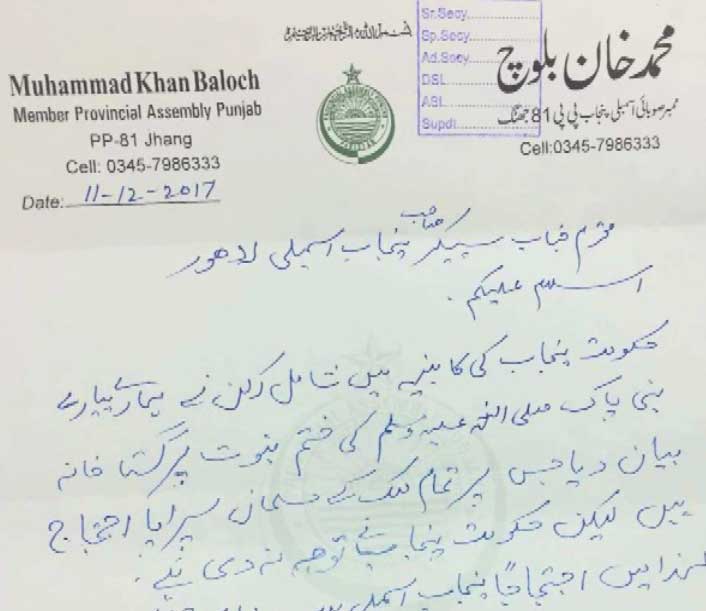 Muhammad Khan Baloch
Member Provincial Assembly Punjab
PP-81 Jhang
Cell: 0345-7986333
Date: 11-12-2017
Sr.Secy
Sp.Secy
Ad.Secy
DSL
ASL
Supdt
محمد خان بلوچ
ممبر صوبائی اسمبلی پنجاب پی پی 81 جھنگ
Cell:0345-7986333
محترم جناب سپیکر صاحب پنجاب اسمبلی لاہور
اسلام علیکم۔
حکومت پنجاب کی کابینہ میں شامل رکن نے ہمارے پیارے
نبی پاک صلی اللہ علیہ وسلم کی ختم نبوت پر گستاخانہ
بیان دیا جس پر تمام ملک کے مسلمان سراپا احتجاج
ہیں لیکن حکومت پنجاب نے توجہ نہ دی ہے۔
لہذا میں احتجاجاً پنجاب اسمبلی